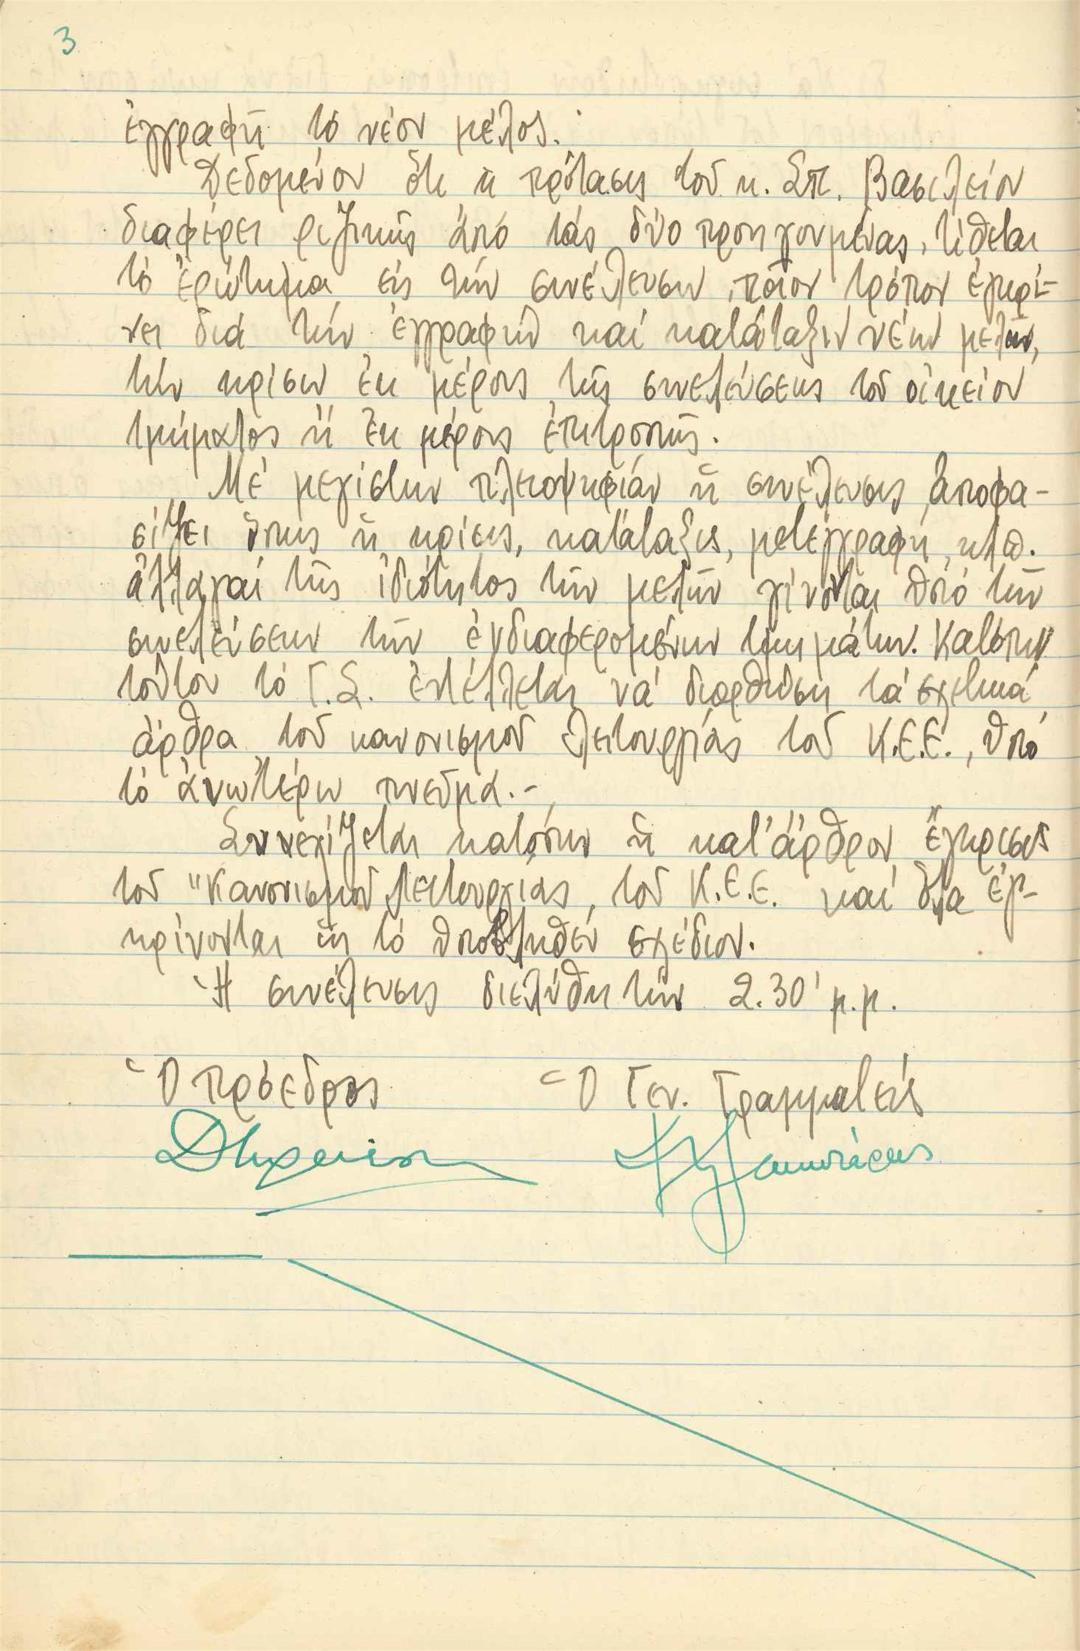 3
ἐγγραφῇ τὸ νέον μέλος.
Δεδομένου ὅτι ἡ πρότασις τοῦ κ. Σπ. Βασιλείου
διαφέρει ριζικῶς ἀπό τάς δύο προηγουμένας, τίθεται
τό ἐρώτημα εἰς τήν συνέλευσιν, ποῖον τρόπον ἐγκρί-
νει διά τήν ἐγγραφήν καί κατάταξιν νέων μελῶν,
τήν κρίσιν ἐκ μέρους τῆς συνελεύσεως τοῦ οἰκείου
τμήματος ἤ ἐκ μέρους ἐπιτροπῆς.
Μέ μεγίστην πλειοψηφίαν ἡ συνέλευσις ἀποφα-
σίζει ὅπως ἡ κρίσις, κατάταξις, μετεγγραφή, κτλ.
ἀλλαγαί τῆς ἰδιότητος τῶν μελῶν γίνονται ὑπό τῶν
συνελεύσεων τῶν ἐνδιαφερομένων τμημάτων. Κατόπιν
τούτου τό Γ.Σ. ἐντέλλεται νά διορθώσῃ τά σχετικά
ἄρθρα τοῦ κανονισμοῦ λειτουργίας τοῦ Κ.Ε.Ε., ὑπό
τό ἀνωτέρω πνεῦμα.-
Συνεχίζεται κατόπιν ἡ κατ' ἄρθρον ἔγκρισις
τοῦ "Κανονισμοῦ Λειτουργίας, τοῦ Κ.Ε.Ε. καί ὅλα ἐγ-
κρίνονται ὡς τό ὑποβληθέν σχέδιον.
Ἡ συνέλευσις διελύθη τήν 2.30' μ.μ.
Ὁ Πρόεδρος Ὁ Γεν. Γραμματεύς